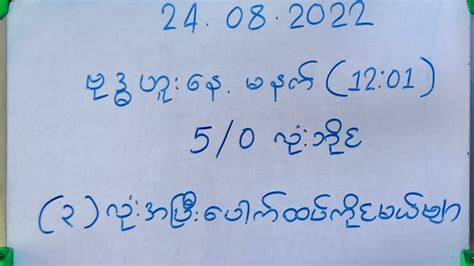 24.08.2022
ဗုဒ္ဓဟူးနေ့ မနက် (12:01)
5/0 လုံးဘိုင်
(၃) လုံးအပြီးပေါက်ထပ်ကိုင်မယ်ဗျာ